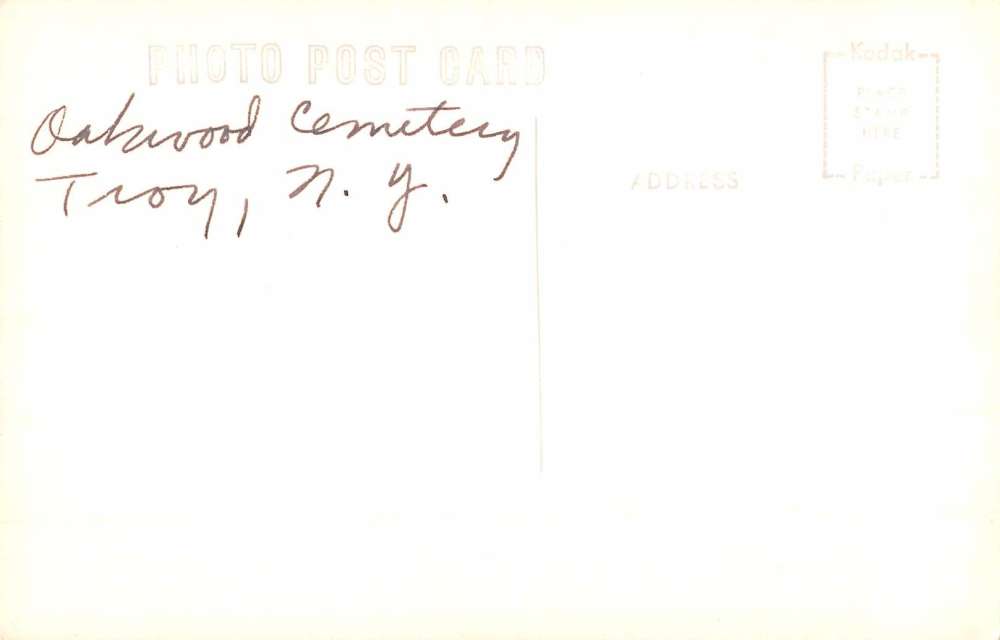 PHOTO POST CARD
Oakwood Cemetery
Troy, N. Y.
ADDRESS
Kodak
PLACE
STAMP
HERE
Paper